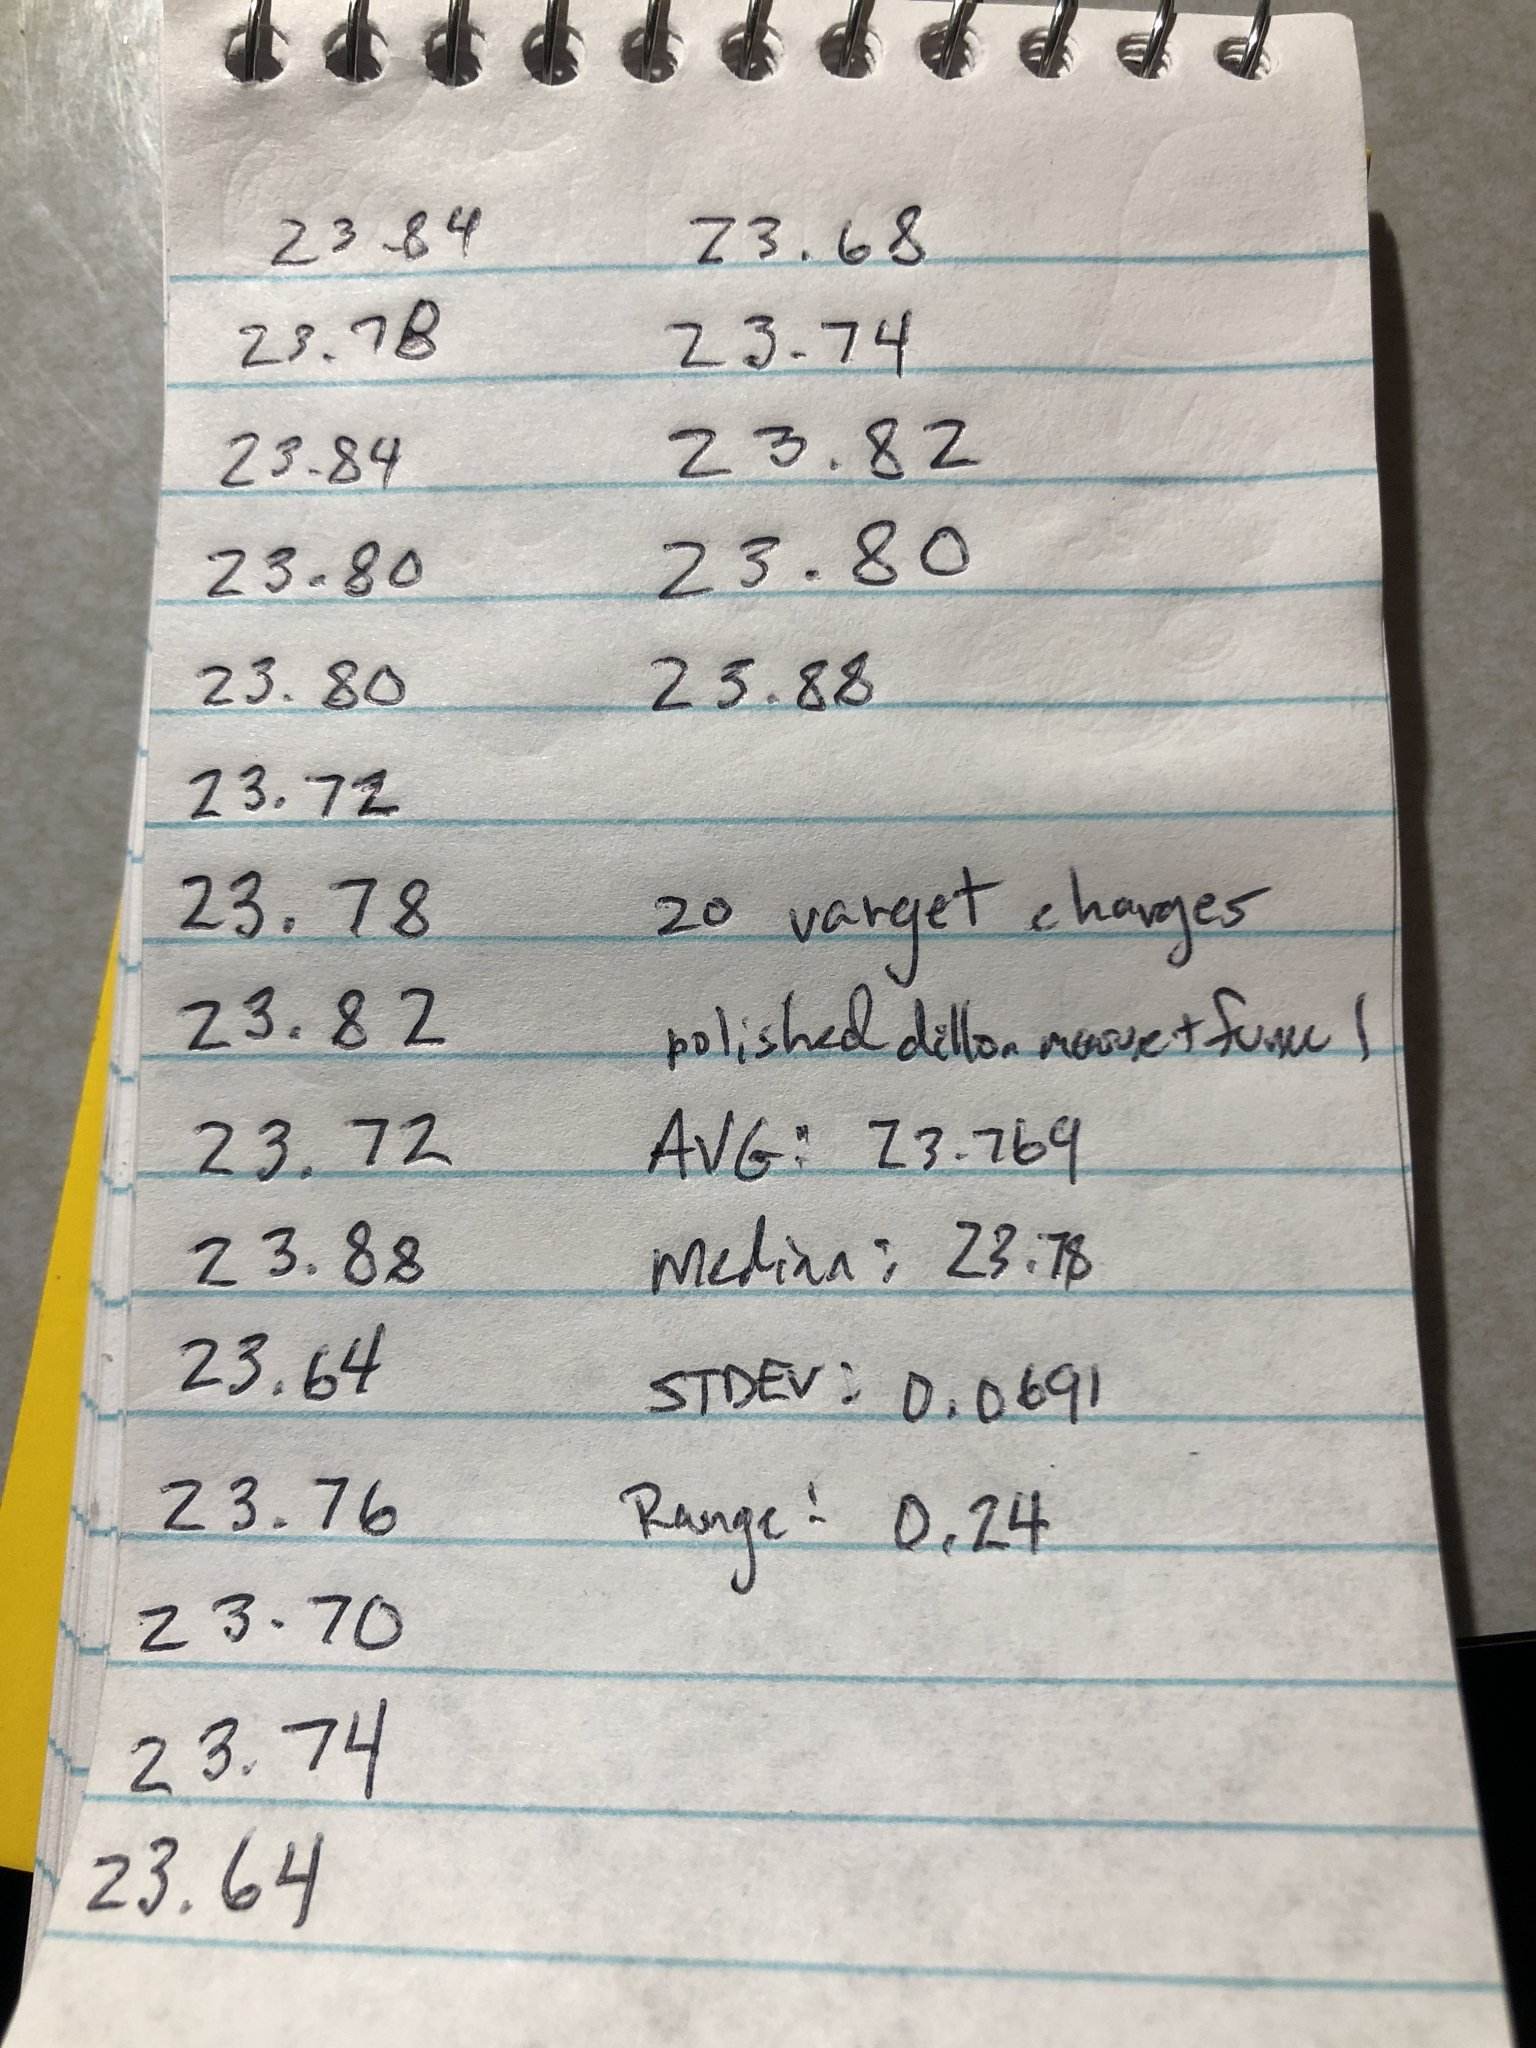 23.84
23.78
23.84
23.80
23.80
23.72
23.78
23.82
23.72
23.88
23.64
23.76
23.70
23.74
23.64
23.68
23.74
23.82
23.80
23.88
20 varget charges
polished dillon funnel
AVG: 23.769
Median: 23.78
STDEV: 0.0691
Range: 0.24